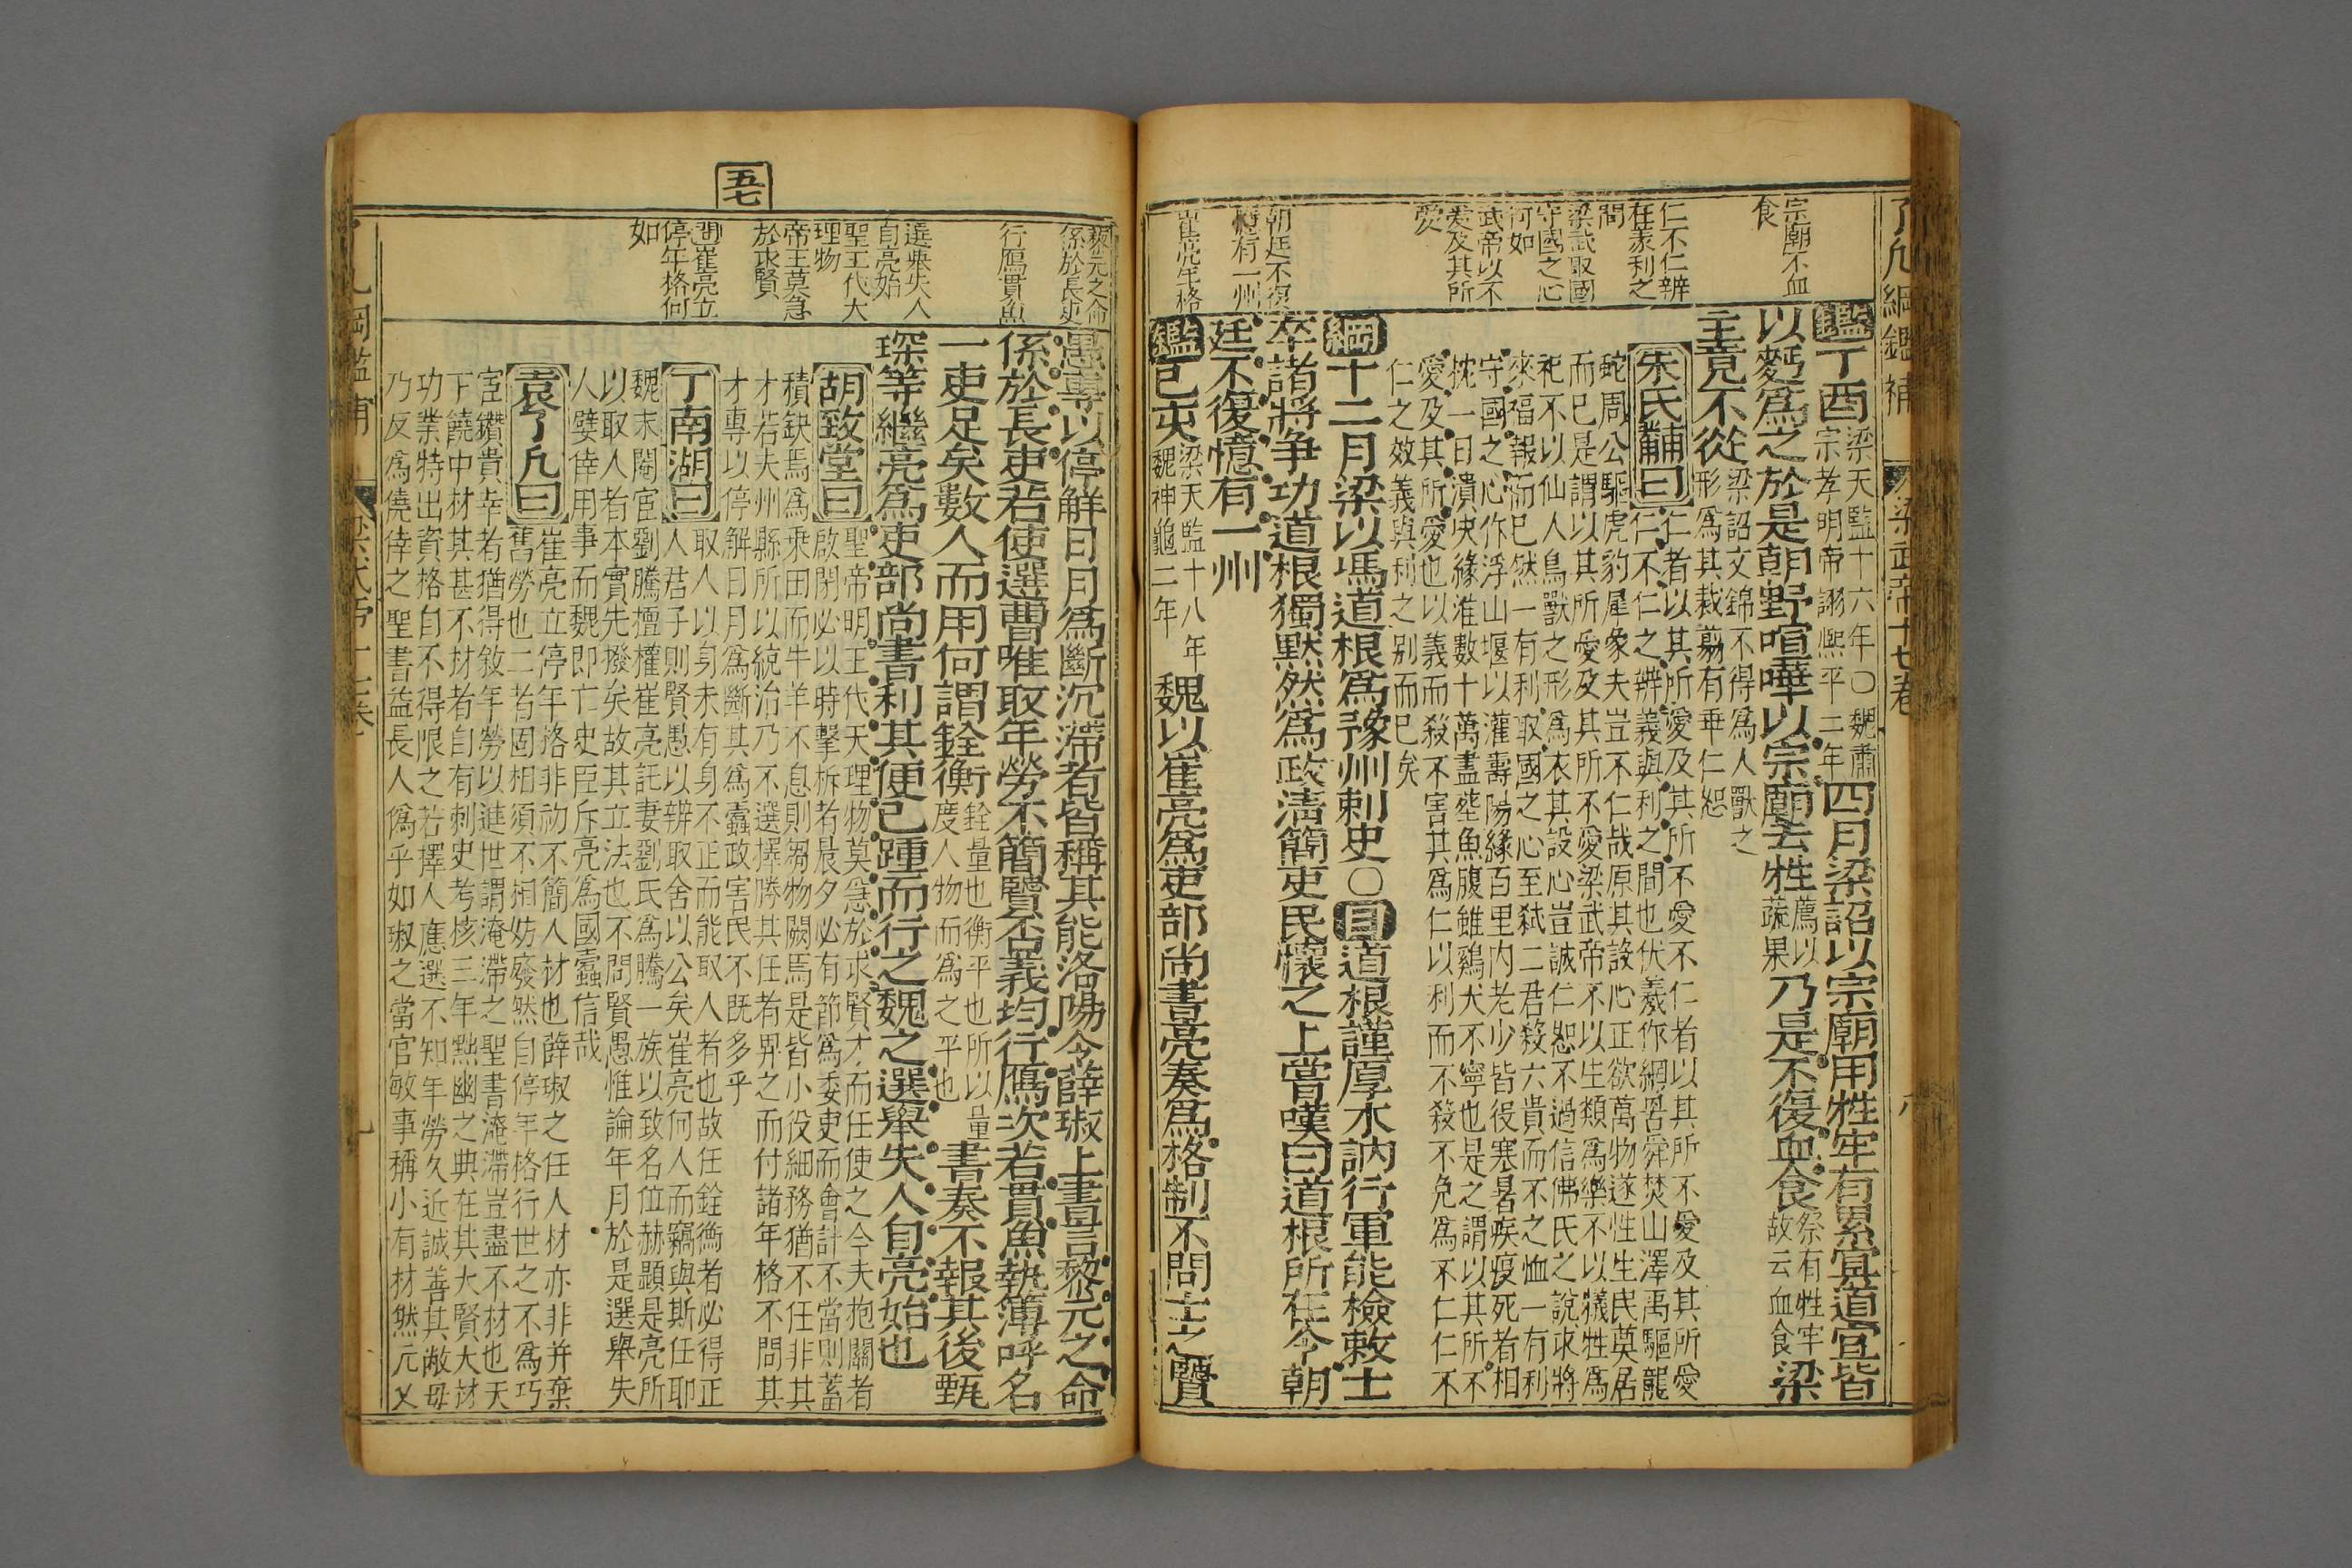 了凡綱鑑補 梁武帝十七卷 八
宗廟不血
食
仁不仁辨
在義利之
間
梁武取國
守國之心
何如
武帝以不
愛及其所
愛
朝廷不復
憶有一州
崔亮年格
鑑丁酉梁天監十六年○魏肅宗孝明帝詡熙平二年四月梁詔以宗廟用牲牢有累冥道宜皆
以麪爲之於是朝野喧嘩以宗廟去牲薦以蔬果乃是不復血食祭有牲牢故云血食梁
主竟不從梁詔文錦不得爲人獸之形爲其裁翦有乖仁恕
朱氏黼曰仁者以其所愛及其所不愛不仁者以其所不愛及其所愛
仁不仁之辨義與利之間也伏羲作網罟舜焚山澤禹驅龍
蛇周公驅虎豹犀象夫豈不仁哉原其設心正欲萬物遂性生民奠居
而已是謂以其所愛及其所不愛梁武帝不以生類爲樂不以犧牲爲
祀不以仙人鳥獸之形爲衣其設心豈誠仁恕不過信佛氏之說求將
來福報而已然一有利取國之心至弑二君殺六貴而不之恤一有利
守國之心作浮山堰以灌壽陽緣百里内老少皆役塞暑疾疫死者相
枕一日潰決緣淮數十萬盡葬魚腹雖鷄犬不寧也是之謂以其所不
愛及其所愛也以義而殺不害其爲仁以利而不殺不免爲不仁仁不
仁之效義與利之别而已矣
綱十二月梁以馮道根爲豫州剌史○目道根謹厚木訥行軍能檢敕士
卒諸將争功道根獨默然爲政淸簡吏民懷之上嘗嘆曰道根所在令朝
廷不復憶有一州
鑑己亥梁天監十八年魏神龜二年魏以崔亮爲吏部尚書亮奏爲格制不問士之賢
五七
黎元之命
係於長吏
行鴈貫魚
選舉失人
自亮始
聖王代大
理物
帝王莫急
於求賢
問崔亮立
停年格何
如
愚專以停解日月爲斷沉滯者皆稱其能洛陽令薛琡上書言黎元之命
係於長吏若使選曹唯取年勞不簡賢否義均行鴈次若貫魚執簿呼名
一吏足矣數人而用何謂銓衡銓量也衡平也所以量度人物而爲之平也書奏不報其後甄
琛等繼亮爲吏部尚書利其便已踵而行之魏之選舉失人自亮始也
胡致堂曰聖帝明王代天理物莫急於求賢才而任使之今夫抱關者
啟閉必以時擊柝者晨夕必有節爲委吏而會計不當則蓄
積缺焉爲乘田而牛羊不息則芻物闕焉是皆小役細務猶不任非其
才若夫州縣所以統治乃不選擇勝其任者畀之而付諸年格不問其
才專以停解日月爲斷其爲蠹政害民不既多乎
丁南湖曰取人以身未有身不正而能取人者也故任銓衡者必得正
人君子則賢愚以辨取舍以公矣崔亮何人而竊與斯任耶
魏末閹宦劉騰擅權崔亮託妻劉氏爲騰一族以致名位赫顯是亮所
以取人者本實先撥矣故其立法也不問賢愚惟論年月於是選舉失
人嬖倖用事而魏即亡史臣斥亮爲國蠹信哉
袁了凡曰崔亮立停年格非初不簡人材也薛琡之任人材亦非并棄
舊勞也二者固相須不相妨廢然自停年格行世之不爲巧
宦鑽貴幸者猶得敘年勞以進世謂淹滯之聖書淹滯豈盡不材也天
下饒中材其甚不材者自有刺史考核三年黜幽之典在其大賢大材
功業特出資格自不得限之若擇人應選不知年勞久近誠善其敝毋
乃反爲僥倖之聖書益長人僞乎如琡之當官敏事稱小有材然元乂